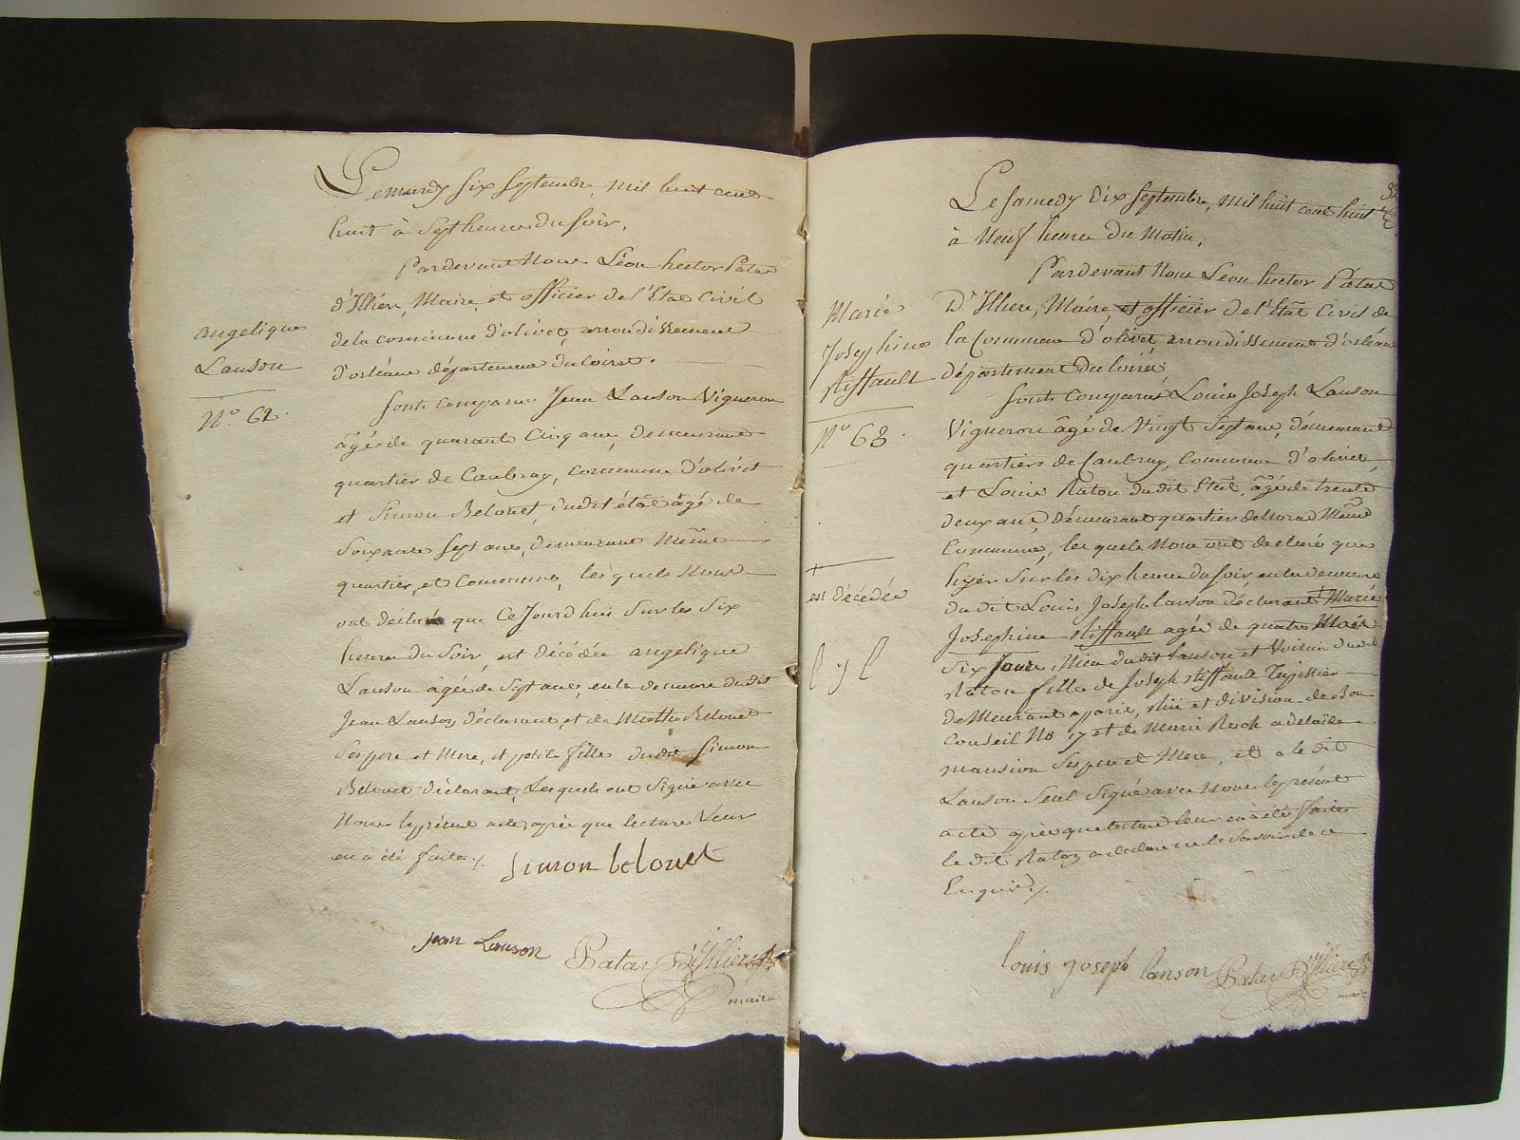 angelique
Lanson
N.° 62.
Le mardy six septembre, mil huit cent
huit à sept heures du soir,
Pardevant Nous Léon hector Patas
d'Illiers, Maire, et officier de l'Etat Civil
de la commune d'olivet, arrondissement
d'orléans département du loiret.
sont comparus Jean Lanson Vigneron
âgé de quarante cinq ans, demeurant
quartier de Caubray, commune d'olivet
et Simon Belouet, dudit état âgé de
soixante sept ans, demeurant même
quartier, et commune, lesquels Nous
ont déclaré que Ce Jourd'hui sur les six
heures du soir, est décédée angelique
Lanson âgée de sept ans, en la demeure dudit
Jean Lanson, déclarant, et de Belouet
ses pere et Mere, et petite fille dudit Simon
Belouet déclarant, Lesquels ont signé avec
Nous le présent acte après que lecture Leur
en a été faite ./.
Simon belouet
jean Lanson
Patas D'Illiers
maire
Marie
Josephine
stiffault
N.° 68.
+
est décédée
l y l
Le samedy dix septembre, mil huit cent huit
à Neuf heures du Matin,
Pardevant Nous Léon hector Patas
D'Illiers, Maire, et officier de l'Etat Civil de
la Commune d'olivet arrondissement d'orléans
département du loiret
sont Comparus Louis Joseph Lanson
Vigneron âgé de Vingt Sept ans, demeurant
quartier de Caubray, Commune d'olivet,
et Louis Raton dudit Etat, âgé de trente
deux ans, demeurant quartier même
Commune, lesquels Nous ont declaré que
hyer sur les dix heures du soir, en la demeure
du dit Louis Joseph lanson déclarant + Marie
Josephine stiffault agée de quatre Mois
six Jours, Niece dudit lanson et Voisin dudit
Raton fille de Joseph stiffault Tapissier
demeurant a paris, rue et division de bon
Conseil No. 17 et de Marie Rock adelaïde
mansion ses pere et Mere, et a le dit
Lanson Seul signé avec Nous le présent
acte après que lecture leur en a été faite
le dit Raton a declaré ne le savoir de ce
Enquis ./.
louis joseph lanson
Patas D'Illiers
maire